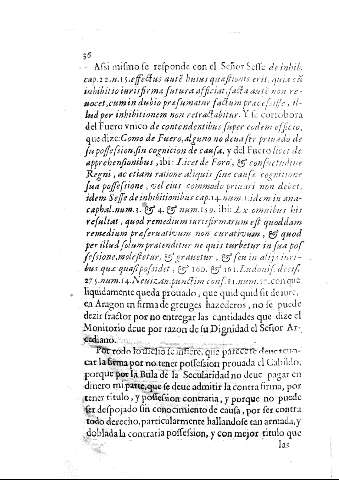 36
Assi mismo se responde con el Señor Sesse de inhib.
cap.22.n.15.effectus autē huius quæstionis erit, quia etsi
inhibitio iurisfirma futura officiat, facta autē non re-
uocet, cum in dubio præsumatur factum præcessisse, il-
lud per inhibitionem non retractabitur. Y se corrobora
del Fuero vnico de contendentibus super eodem officio,
que dize: Como de Fuero, alguno no deua ser priuado de
su possession, sin cognicion de causa, y del Fuero licet de
apprehensionibus, ibi: Licet de Foro, & consuetudine
Regni, ac etiam ratione aliquis sine causæ cognitione
sua possessione, vel eius commodo priuari non debet,
idem Sesse de inhibitionibus cap.14. num.1. idem in ana-
cephal. num.3. & 4. & num.159. ibi: Ex omnibus his
resultat, quod remedium iurisfirmarum est quoddam
remedium præseruatiuum non curatiuum, & quod
per illud solum prætenditur ne quis turbetur in sua pos
sessione, molestetur, & grauetur, & seu in alijs iuri-
bus quæ quasi possidet, & 160. & 161. Ludouis. decis.
275. num.14. con que
liquidamente queda prouado, que quid quid sit de iure,
en Aragon in firma de greuges hazederos, no se puede
dezir fractor por no entregar las cantidades que dize el
Monitorio deue por razon de su Dignidad el Señor Ar-
cediano.
Por todo lo dicho se infiere, que parece se deue reuo-
car la firma por no tener possession prouada el Cabildo,
porque por la Bula de la Secularidad no deue pagar en
dinero mi parte, que se deue admitir la contra firma, por
tener titulo, y possession contraria, y porque no puede
ser despojado sin conocimiento de causa, por ser contra
todo derecho, particularmente hallandose tan armada, y
doblada la contraria possession, y con mejor titulo que
las